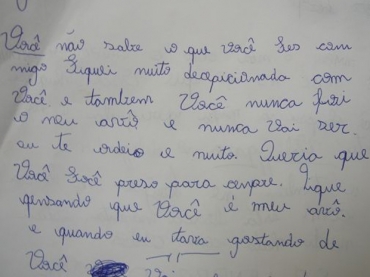 Você não sabe o que você fes com
migo fiquei muito decepicionada com
Você. e tambem Você nunca foi
o meu avô e nunca vai ser.
eu te odeio e muito. Queria que
Você Socé preso para cenpre. Fique
pensando que Você é meu avô.
e quando eu tava gostando de
Você